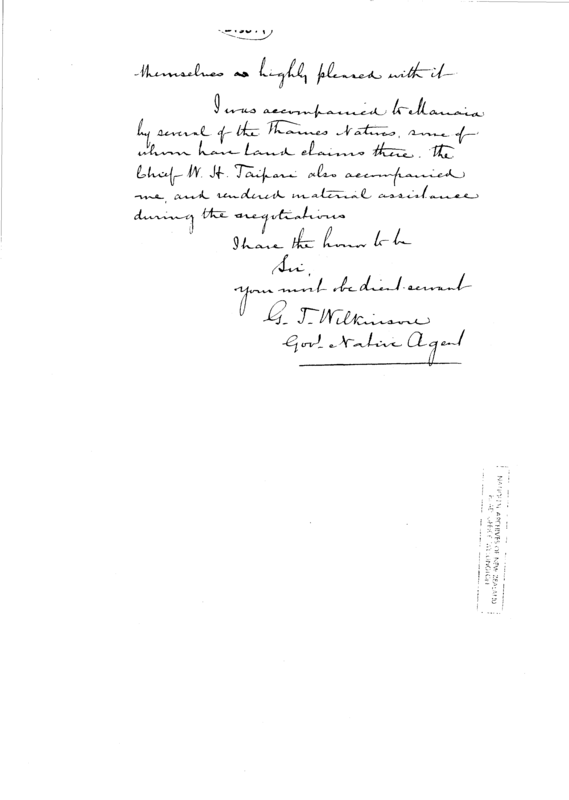 themselves as highly pleased with it
I was accompanied to Manaia
by several of the Thames Natives, some of
whom have Land claims there. The
Chief W. H. Taipari also accompanied
me, and rendered material assistance
during the negotiations
I have the honor to be
Sir,
your most obedient servant
G. T. Wilkinson
Govt. Native Agent
ARCHIVES OF NEW ZEALAND